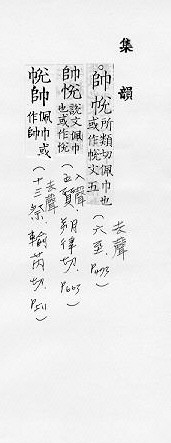 集韻
帥帨所類切佩巾也或作帨文五(六至
去聲
帥帨說文佩巾也或作帨(入聲 五質,朔律切.
帨帥佩巾或作帥(去聲 十三祭.輸芮切.P511)